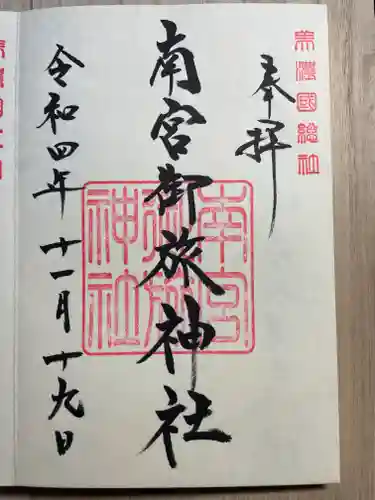 美濃國總社
奉拝
南宮御旅神社
南宮御旅神社
令和四年十一月十九日